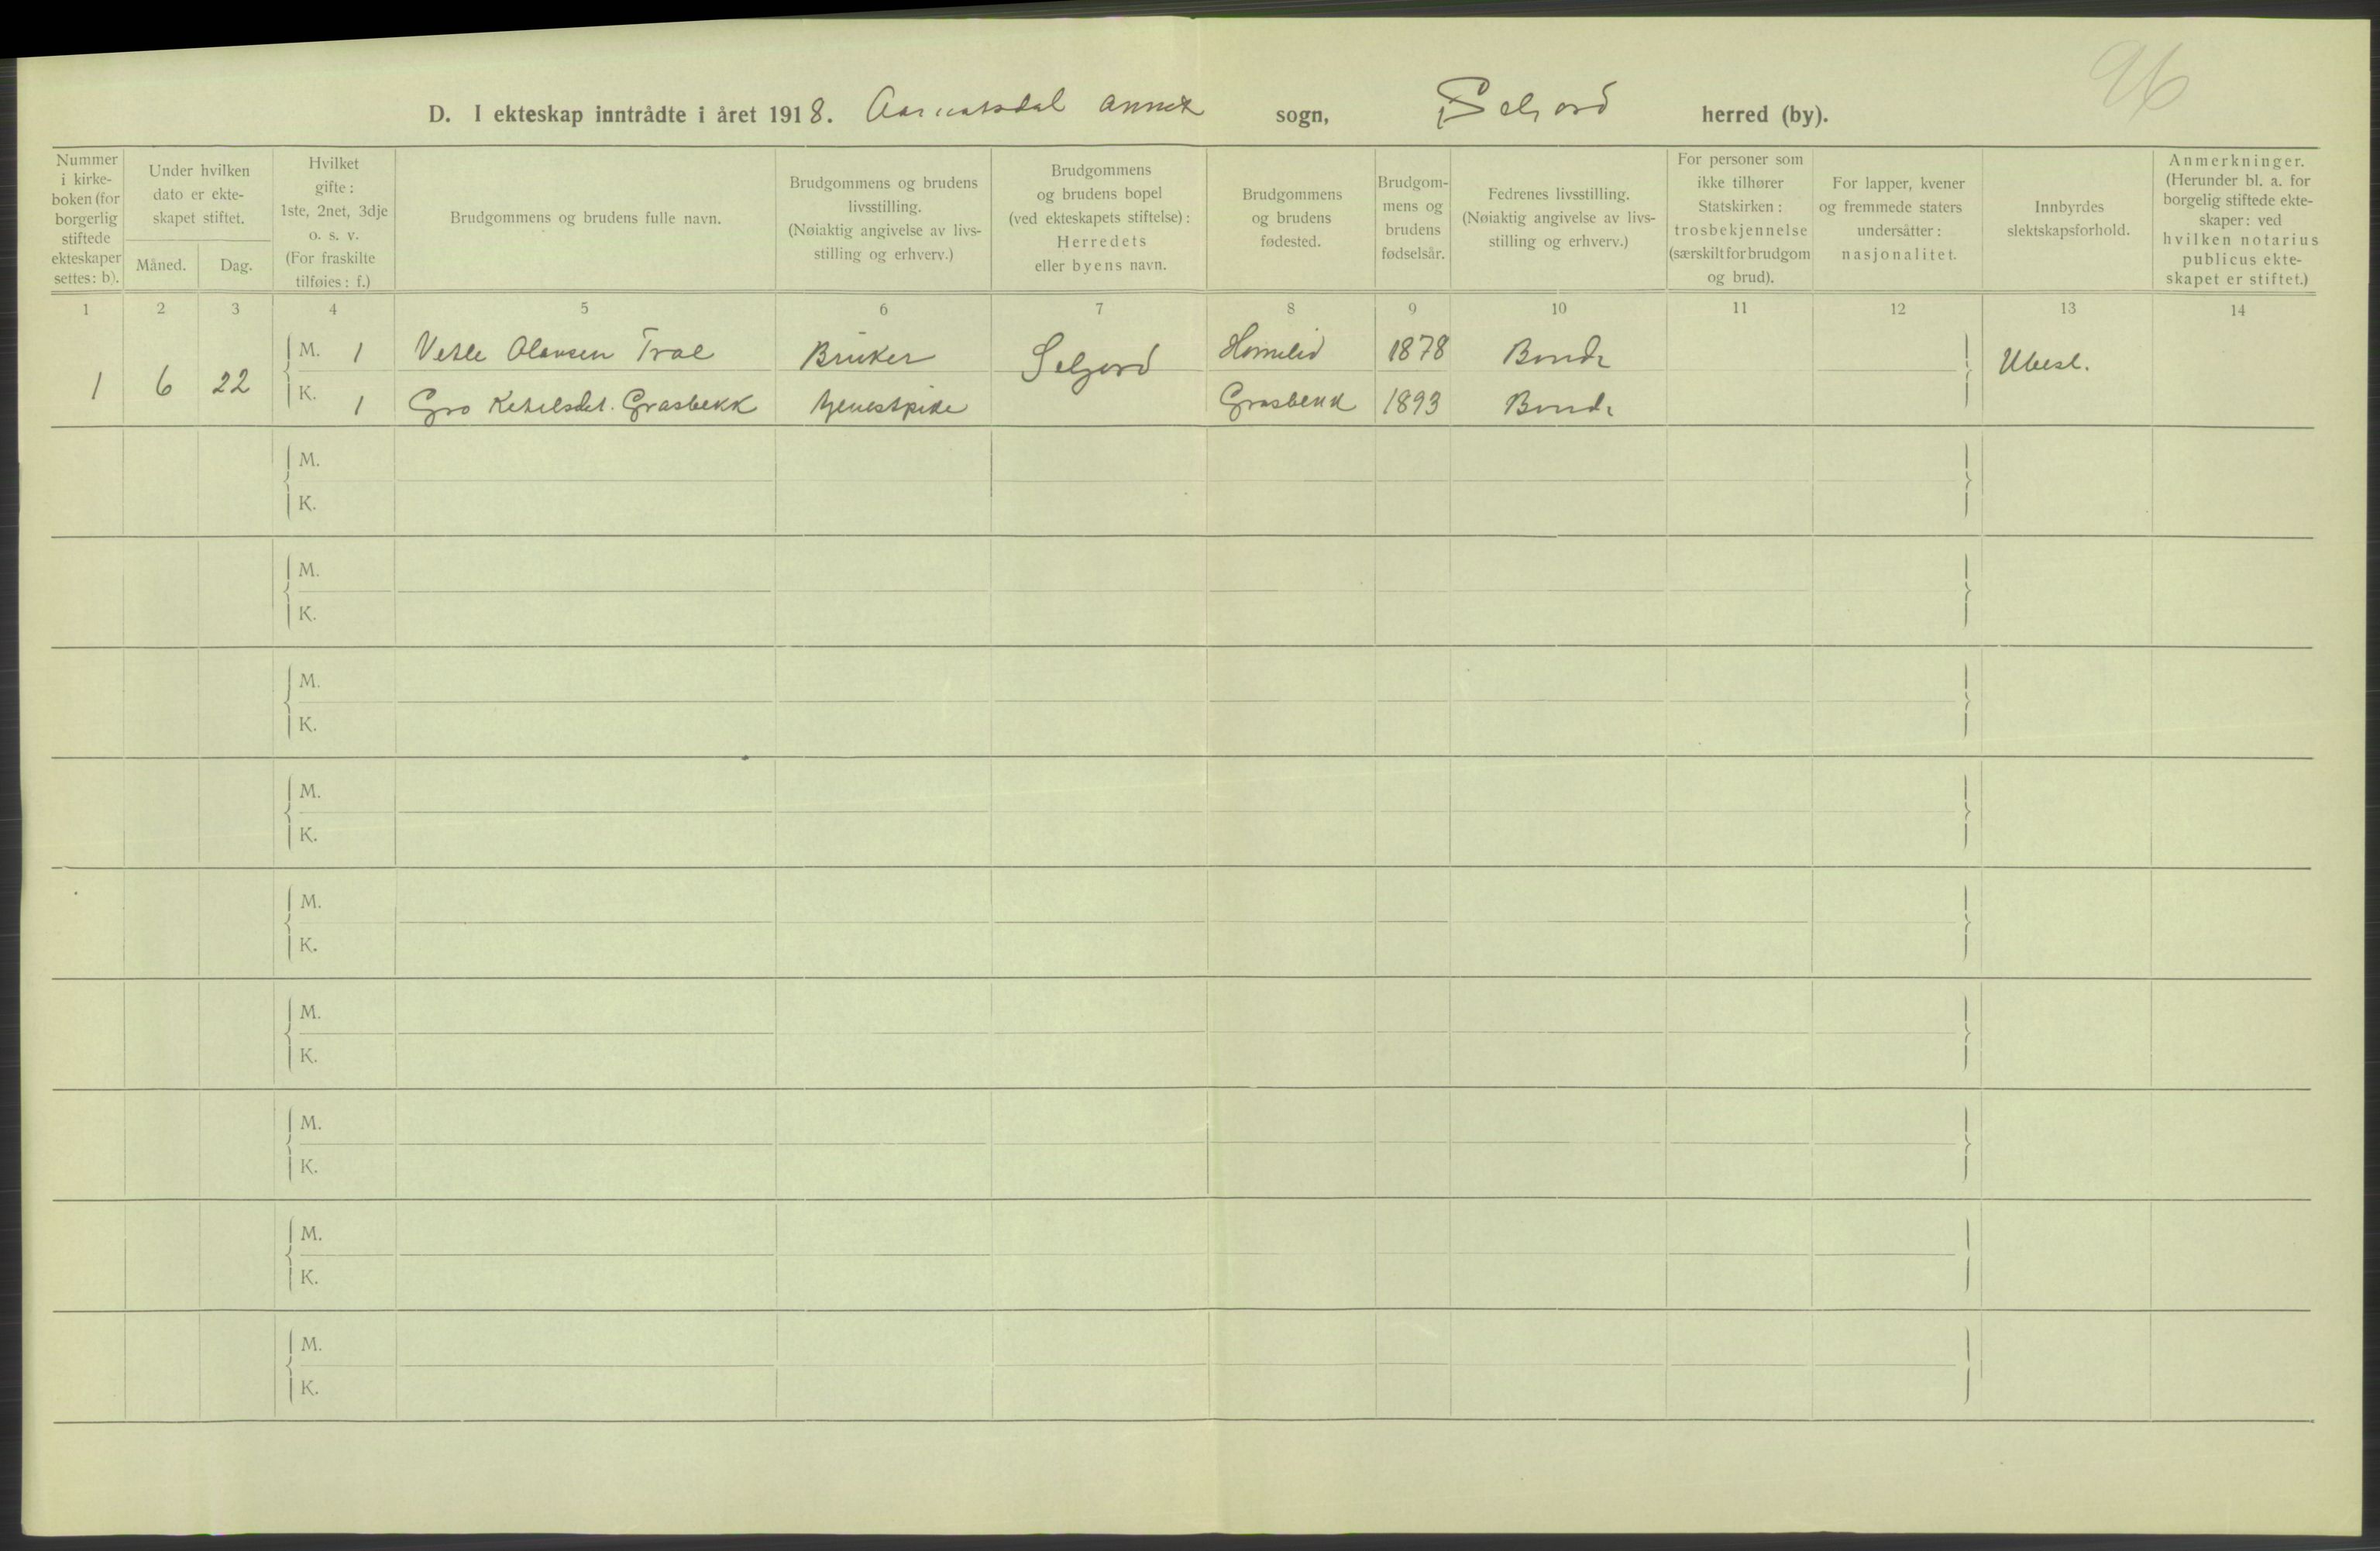 96
D. I ekteskap inntrådte i året 1918. annex sogn, Seljord herred (by).
Nummer i kirkeboken (for borgerlig stiftede ekteskaper settes: b).
Under hvilken dato er ekteskapet stiftet.
Måned.
Dag.
Hvilket gifte: 1ste, 2net, 3dje o. s. v. (For fraskilte tilføies: f.)
Brudgommens og brudens fulle navn.
Brudgommens og brudens livsstilling. (Nøiaktig angivelse av livsstilling og erhverv.)
Brudgommens og brudens bopel (ved ekteskapets stiftelse): Herredets eller byens navn.
Brudgommens og brudens fødested.
Brudgommens og brudens fødselsår.
Fedrenes livsstilling. (Nøiaktig angivelse av livsstilling og erhverv.)
For personer som ikke tilhører Statskirken: trosbekjennelse (særskilt for brudgom og brud).
For lapper, kvener og fremmede staters undersåtter: nasjonalitet.
Innbyrdes slektskapsforhold.
Anmerkninger. (Herunder bl. a. for borgelig stiftede ekteskaper: ved hvilken notarius publicus ekteskapet er stiftet.)
1 2 3 4 5 6 7 8 9 10 11 12 13 14
1 6 22
M. 1 Vetle Olavsen Trae Bruker Seljord Homlid 1878 Bonde Ubesl.
K. 1 Gro Ketilsdt. Grasbekk tjenestpike Grasbekk 1893 Bonde
M.
K.
M.
K.
M.
K.
M.
K.
M.
K.
M.
K.
M.
K.
M.
K.
M.
K.